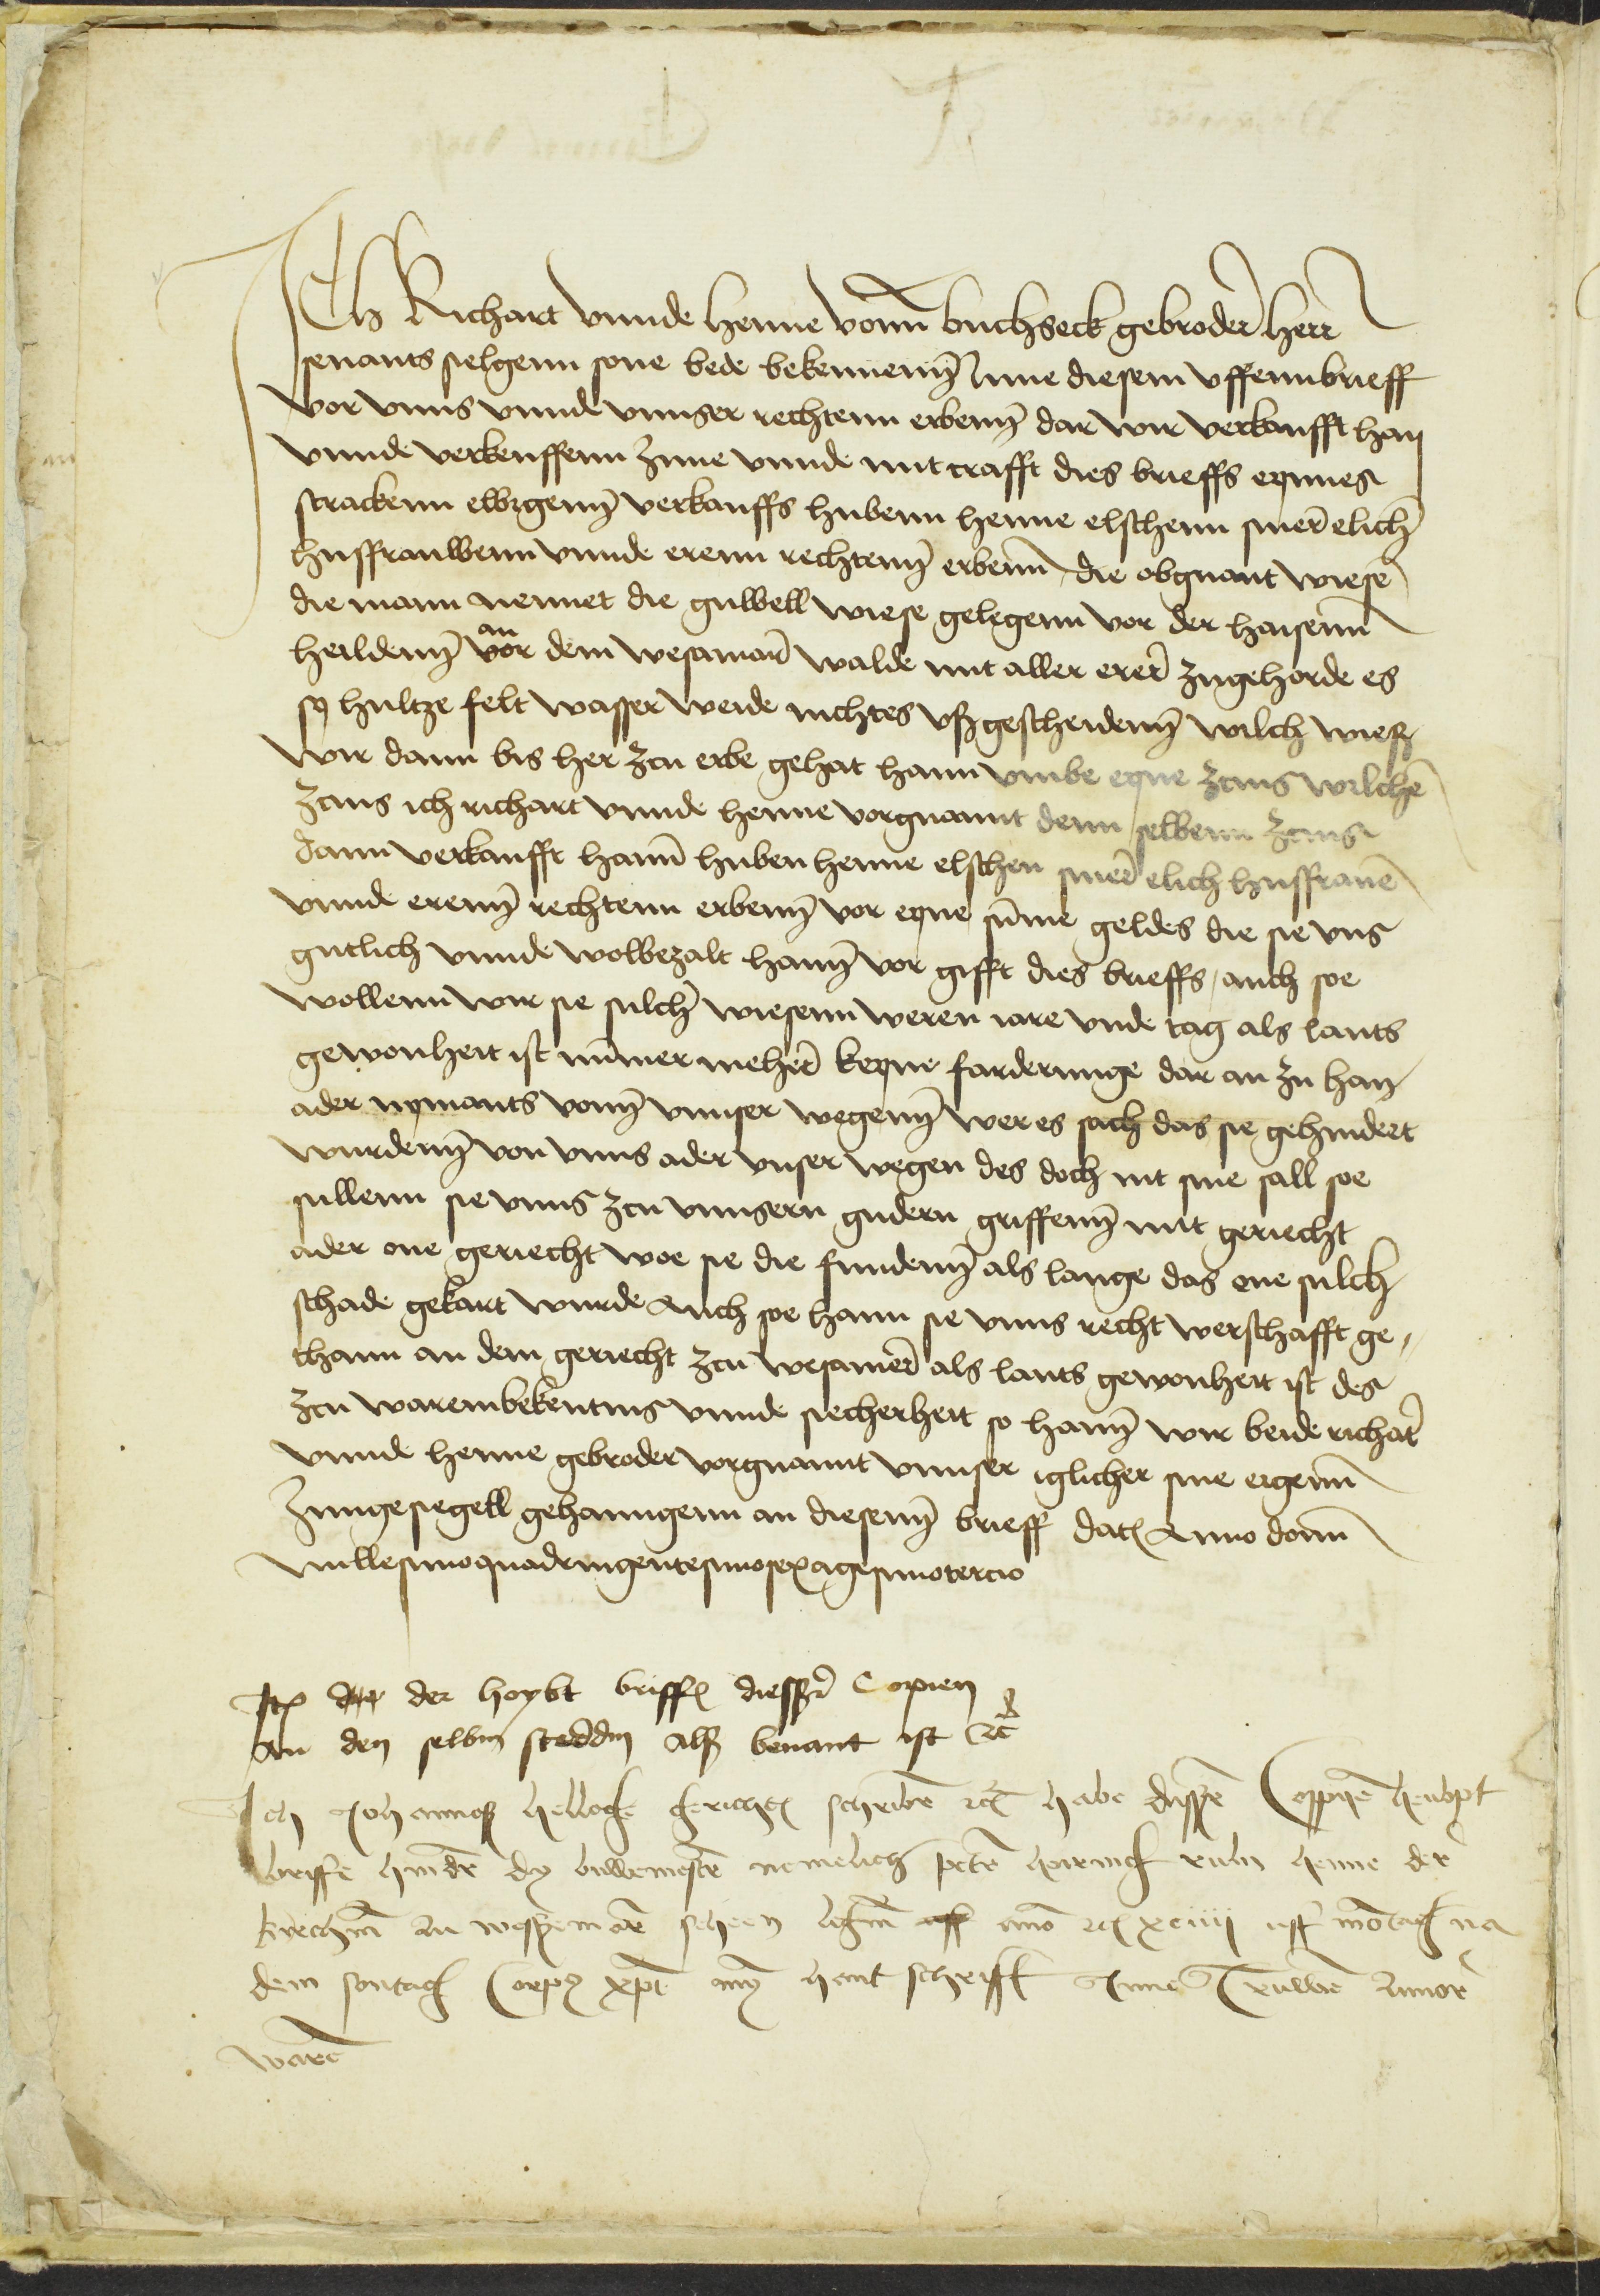 Ich Richart vnnde henne vonn buchseck gebroder herr
senants selgenn sone bede bekennenn Inne diesem vffennbrieff
vor vnns vnnde vnnser rechtenn erbenn dar wir verkaufft han
vnnde verkeuffenn Inne vnnde mit crafft dies brieffs eynnes
strackenn ewigenn verkauffs hubenn henne elschenn siner elich
husfrauwenn vnnde erenn rechtenn erbenn die obgnant wiese
die mann nennet die guwell wiese gelegenn vor der haisenn
heildenn vor an dem wesamar walde mit aller erer zugehorde es
sy hultze felt wasser weide nichtes vßgescheidenn wilch wieß
wir dann bis her zcu erbe gehat hann vmbe eyne zcins wilche
zcins ich richart vnnde henne vorgnannt denn selbenn zcins
dann verkaufft hann huben henne elschen siner elich husfraue
vnnde erenn rechtenn erbenn vor eyne summe geldes die sie vns
gutlich vnnde wolbezalt hann vor gifft dies brieffs / auch soe
wollenn wir sie sulch wiesenn weren iare vnde tag als lants
gewonheit ist nummer meher keyne farderunge dar an zu han
ader nymants vonn vnnser wegenn wer es sach das sie gehindert
wurdenn von vnns ader vnser wegen des doch nit sine sall soe
sullenn sie vnns zcu vnnsern gudern griffenn mit geriecht
ader one geriecht woe sie die fundenn als lange das one sulch
schade gekart wurde Auch soe hann sie vnns recht werschafft ge/
thann an dem geriecht zcu wesamer als lants gewonheit ist des
zcu warembekentnis vnnde siecherheit so hann wir beide richart
vnnde henne gebroder vorgnannt vnnser iglicher sine eigenn
Inngesiegell gehanngenn an diesenn brieff dat Anno domi
millesimoquadringentesimosexagesimotercio
Item der hoybt briff dießer Copien
An den selbin steddin alß benant ist etc
Ich Johannes hellock gericht schriber etc habe dusser Coppyen heubpt
briffe hinder dy buwemester nemelich peter hairinck ruln henne der
kirchen zu wessemar sehen ligen anno etc xciiii uff montag na
dem sontag Corpus xpi myn hant schrifft Inne truwen
waren